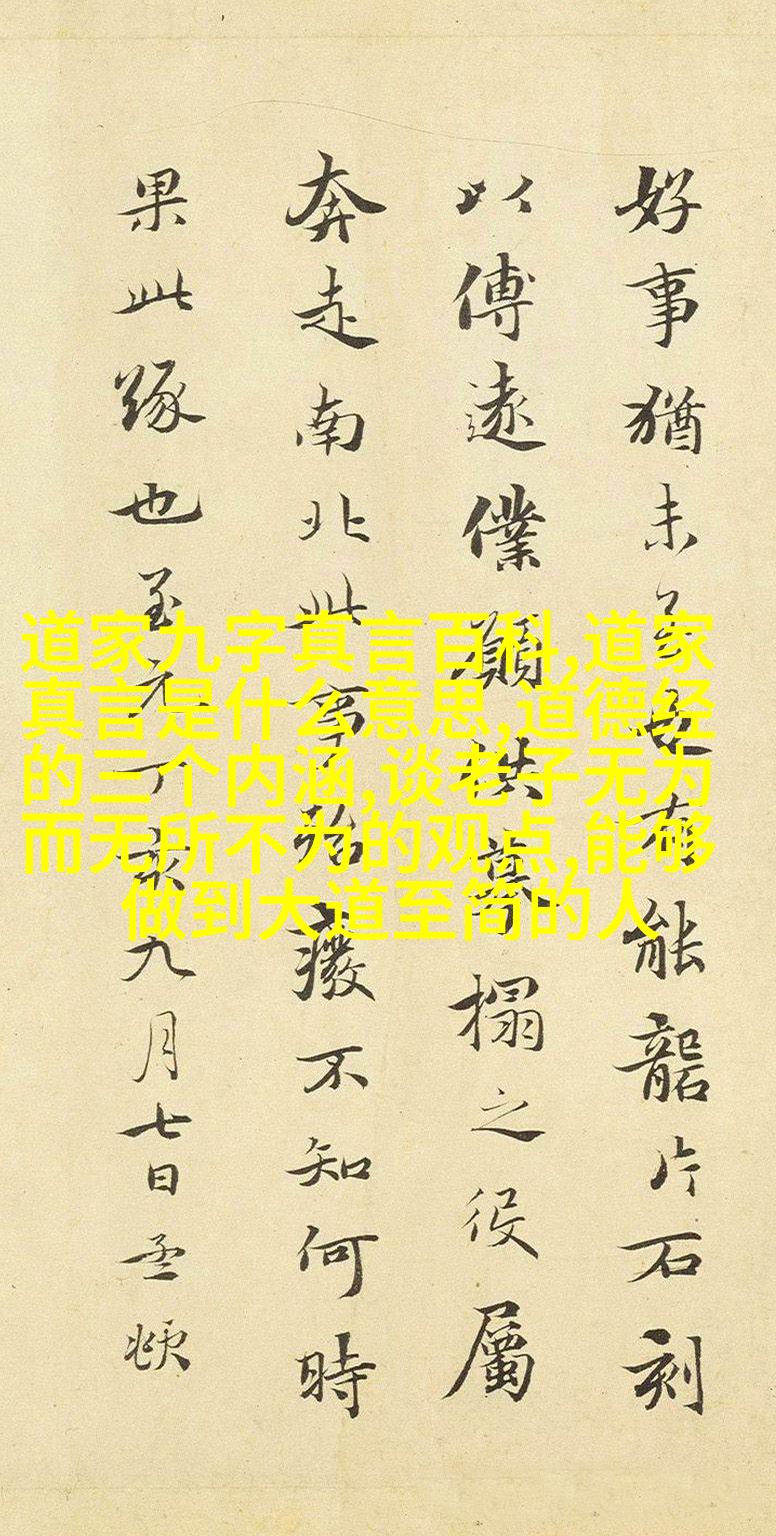 好事猶未有能礱片石刻
以傳遠僕願供摹搨之役屬
奔走南北此事殆廢不知何時
果此緣也至元丁亥九月七日孟頫
道家九字真言百科,道家
真言是什么意思,道德经
的三个内涵,谈老子无为
而无所不为的观点,能够
做到大道至简的人